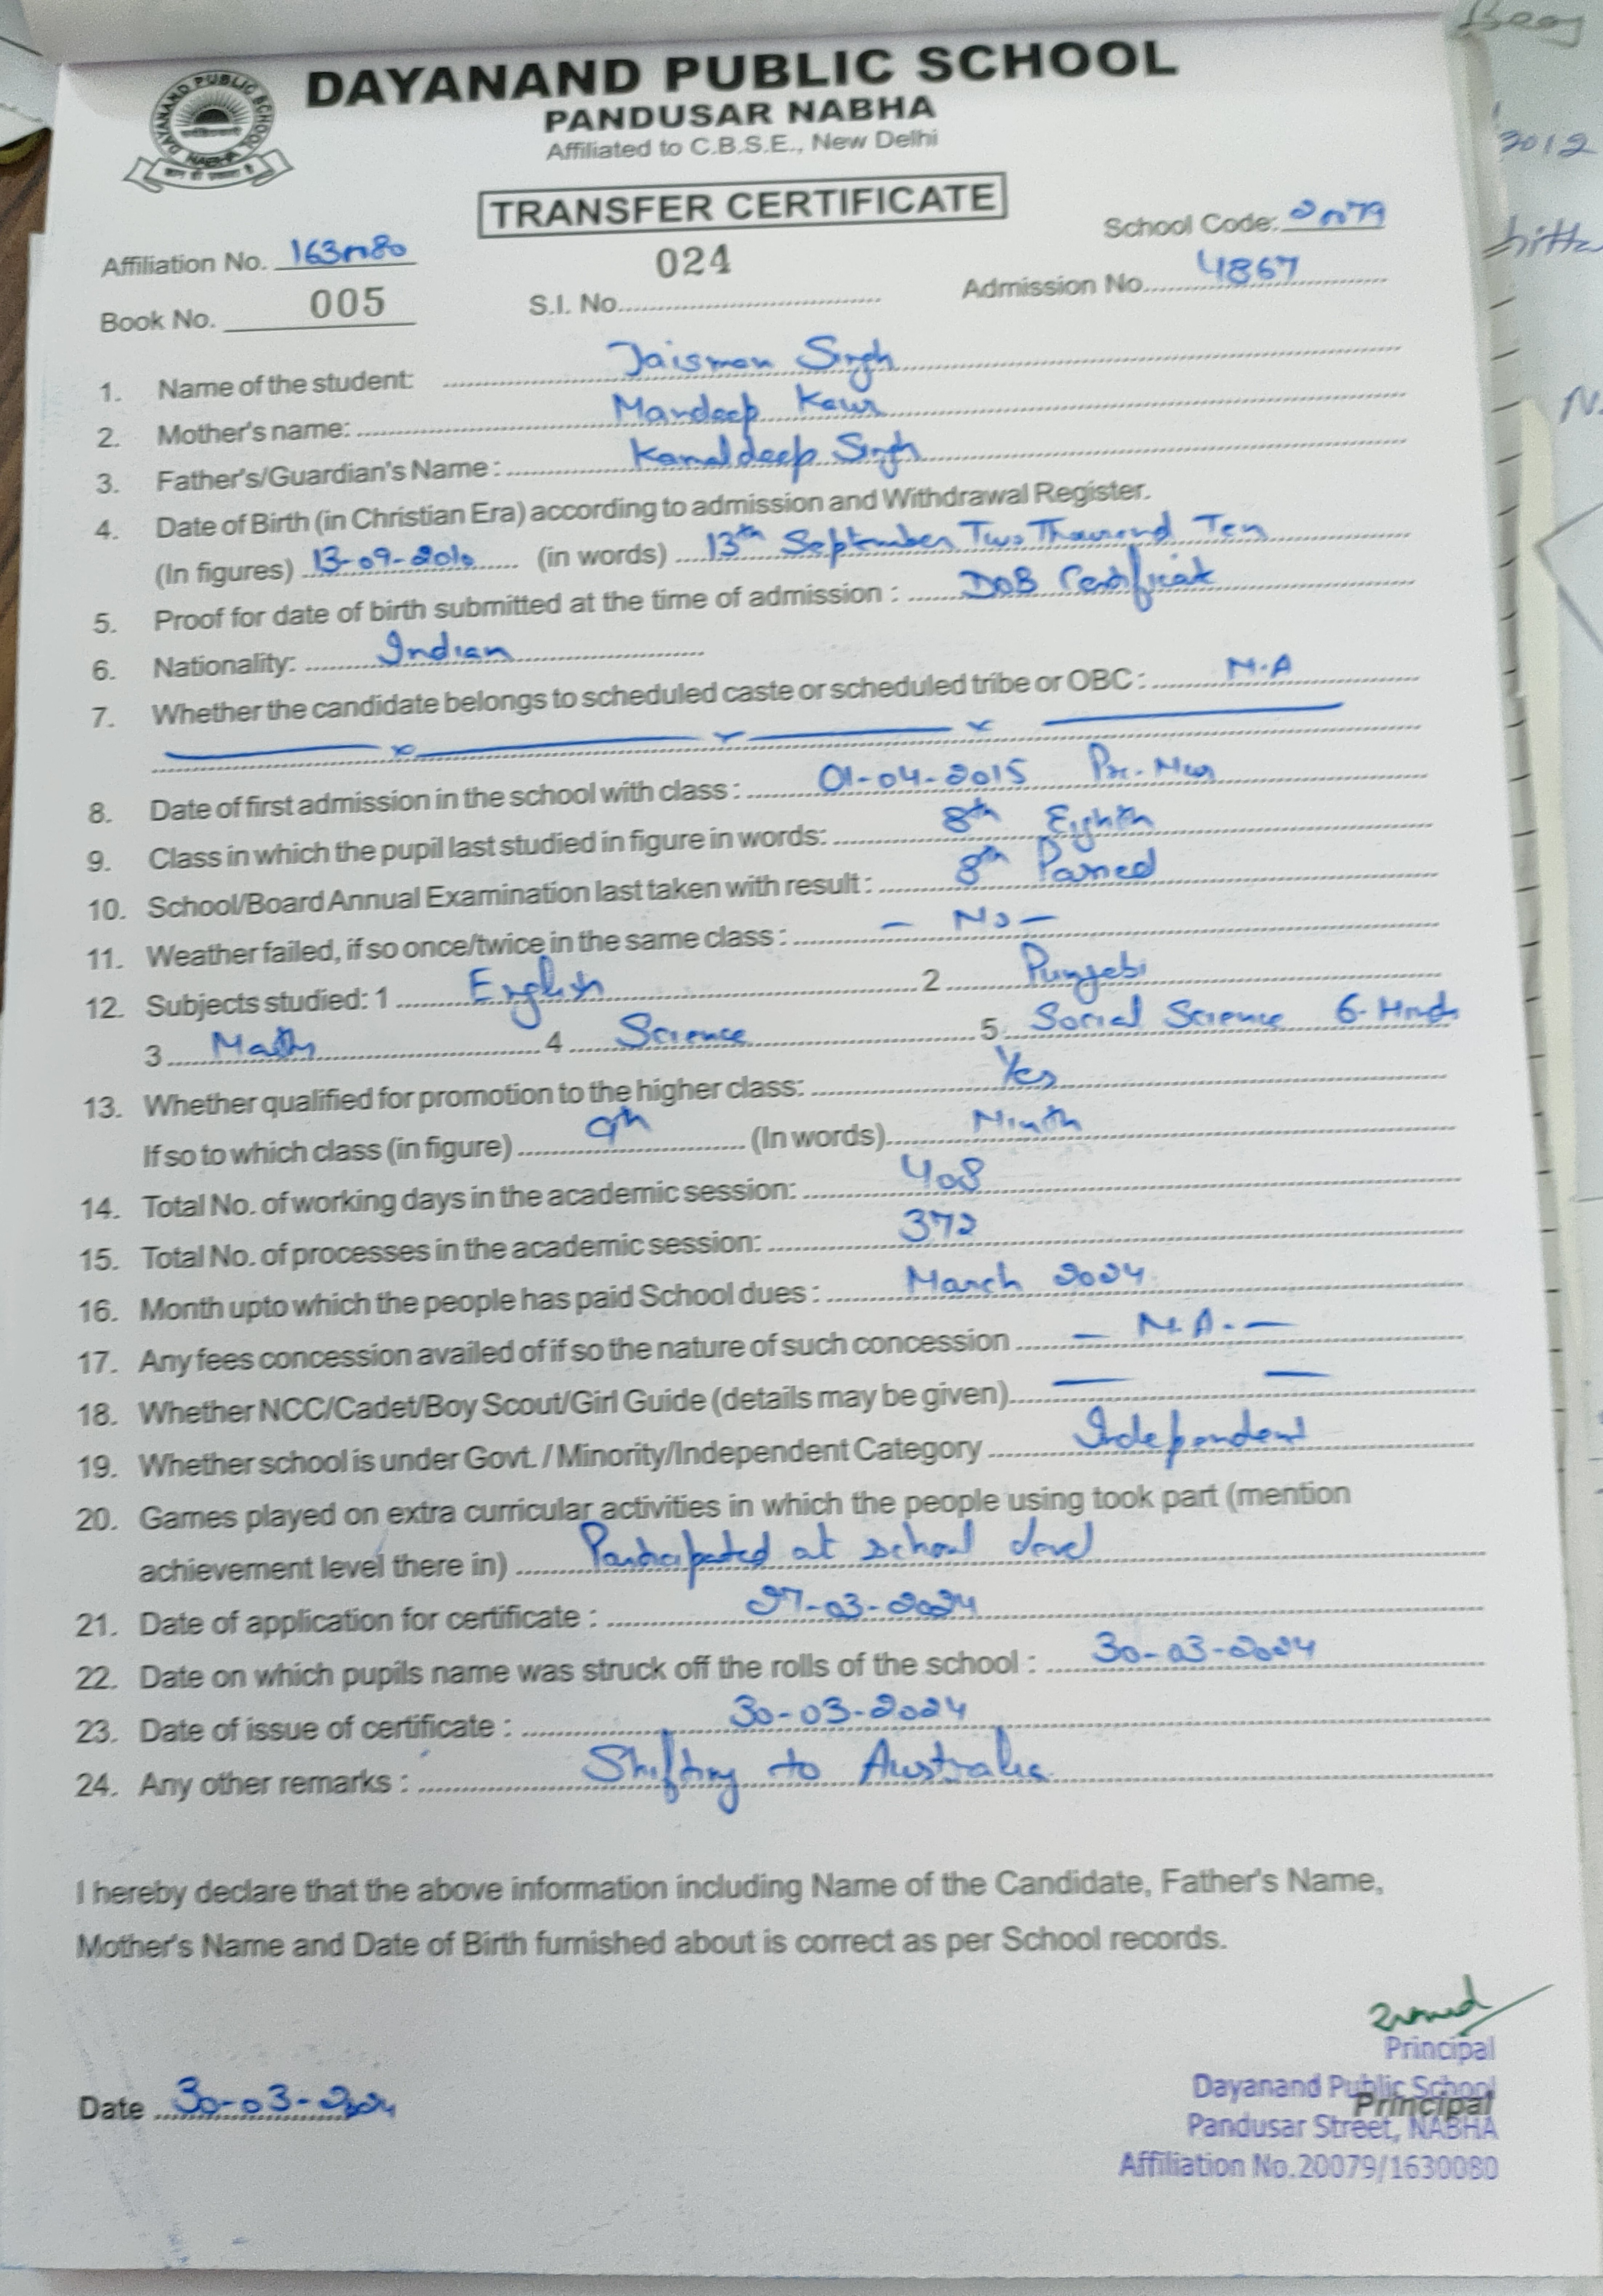 DAYANAND PUBLIC SCHOOL
PANDUSAR NABHA
Affiliated to C.B.S.E., New Delhi
DAYANAND PUBLIC SCHOOL
NABHA
TRANSFER CERTIFICATE
Affiliation No. 1630080
School Code: 20079
Book No. 005
S.I. No. 024
Admission No. 4867
1. Name of the student: Jaisman Singh
2. Mother's name: Mandeep Kaur
3. Father's/Guardian's Name : Kamaldeep Singh
4. Date of Birth (in Christian Era) according to admission and Withdrawal Register.
(In figures) 13-09-2010 (in words) 13th September Two Thousand Ten
5. Proof for date of birth submitted at the time of admission : DOB Certificate
6. Nationality: Indian
7. Whether the candidate belongs to scheduled caste or scheduled tribe or OBC : N.A
8. Date of first admission in the school with class : 01-04-2015 Pre-Nur
9. Class in which the pupil last studied in figure in words: 8th Eighth
10. School/Board Annual Examination last taken with result : 8th Passed
11. Weather failed, if so once/twice in the same class : - No -
12. Subjects studied: 1 English 2 Punjabi
3 Math 4 Science 5. Social Science 6- Hindi
13. Whether qualified for promotion to the higher class: Yes
If so to which class (in figure) 9th (In words) Ninth
14. Total No. of working days in the academic session: 408
15. Total No. of processes in the academic session: 372
16. Month upto which the people has paid School dues : March 2024
17. Any fees concession availed of if so the nature of such concession - N.A. -
18. Whether NCC/Cadet/Boy Scout/Girl Guide (details may be given) - -
19. Whether school is under Govt. / Minority/Independent Category Independent
20. Games played on extra curricular activities in which the people using took part (mention
achievement level there in) Participated at school level
21. Date of application for certificate : 27-03-2024
22. Date on which pupils name was struck off the rolls of the school : 30-03-2024
23. Date of issue of certificate : 30-03-2024
24. Any other remarks : Shifting to Australia
I hereby declare that the above information including Name of the Candidate, Father's Name,
Mother's Name and Date of Birth furnished about is correct as per School records.
Date 30-03-2024
Principal
Dayanand Public School
Principal
Pandusar Street, NABHA
Affiliation No.20079/1630080
2012